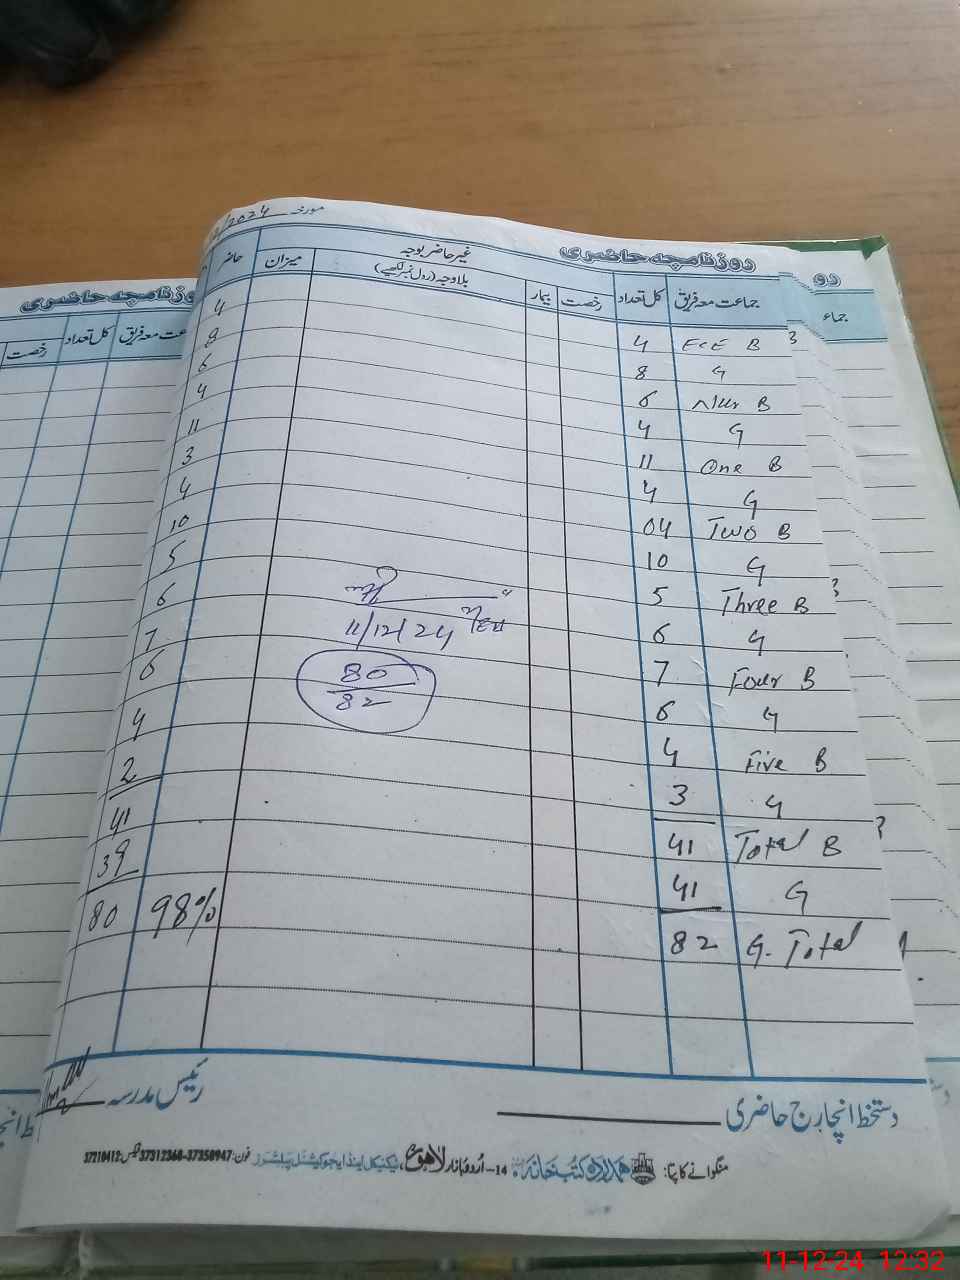 مورخہ /2024
روزنامچہ حاضری
جماعت معہ فریق کل تعداد رخصت بیمار غیر حاضر بوجہ میزان حاضر
بلاوجہ (رول نمبر لکھیے)
ECE B 4 4
G 8 8
Nur B 6 6
G 4 4
One B 11 11
G 4 3
Two B 04 4
G 10 10
Three B 5 5
G 6 6
Four B 7 7
G 6 6
Five B 4 4
G 3 2
Total B 41 41
G 41 39
G. Total 82 80 98%
11/12/24
80
82
دستخط انچارج حاضری
رئیس مدرسہ
منگوانے کا پتا: ہمدرد کتب خانہ 14-اردو بازار لاہور، ٹیکنیکل اینڈ ایجوکیشنل پبلشرز فون: 37358947-37312368 فیکس: 37210412
روزنامچہ حاضری
کل تعداد رخصت
رو
جماعت
11-12-24 12:32